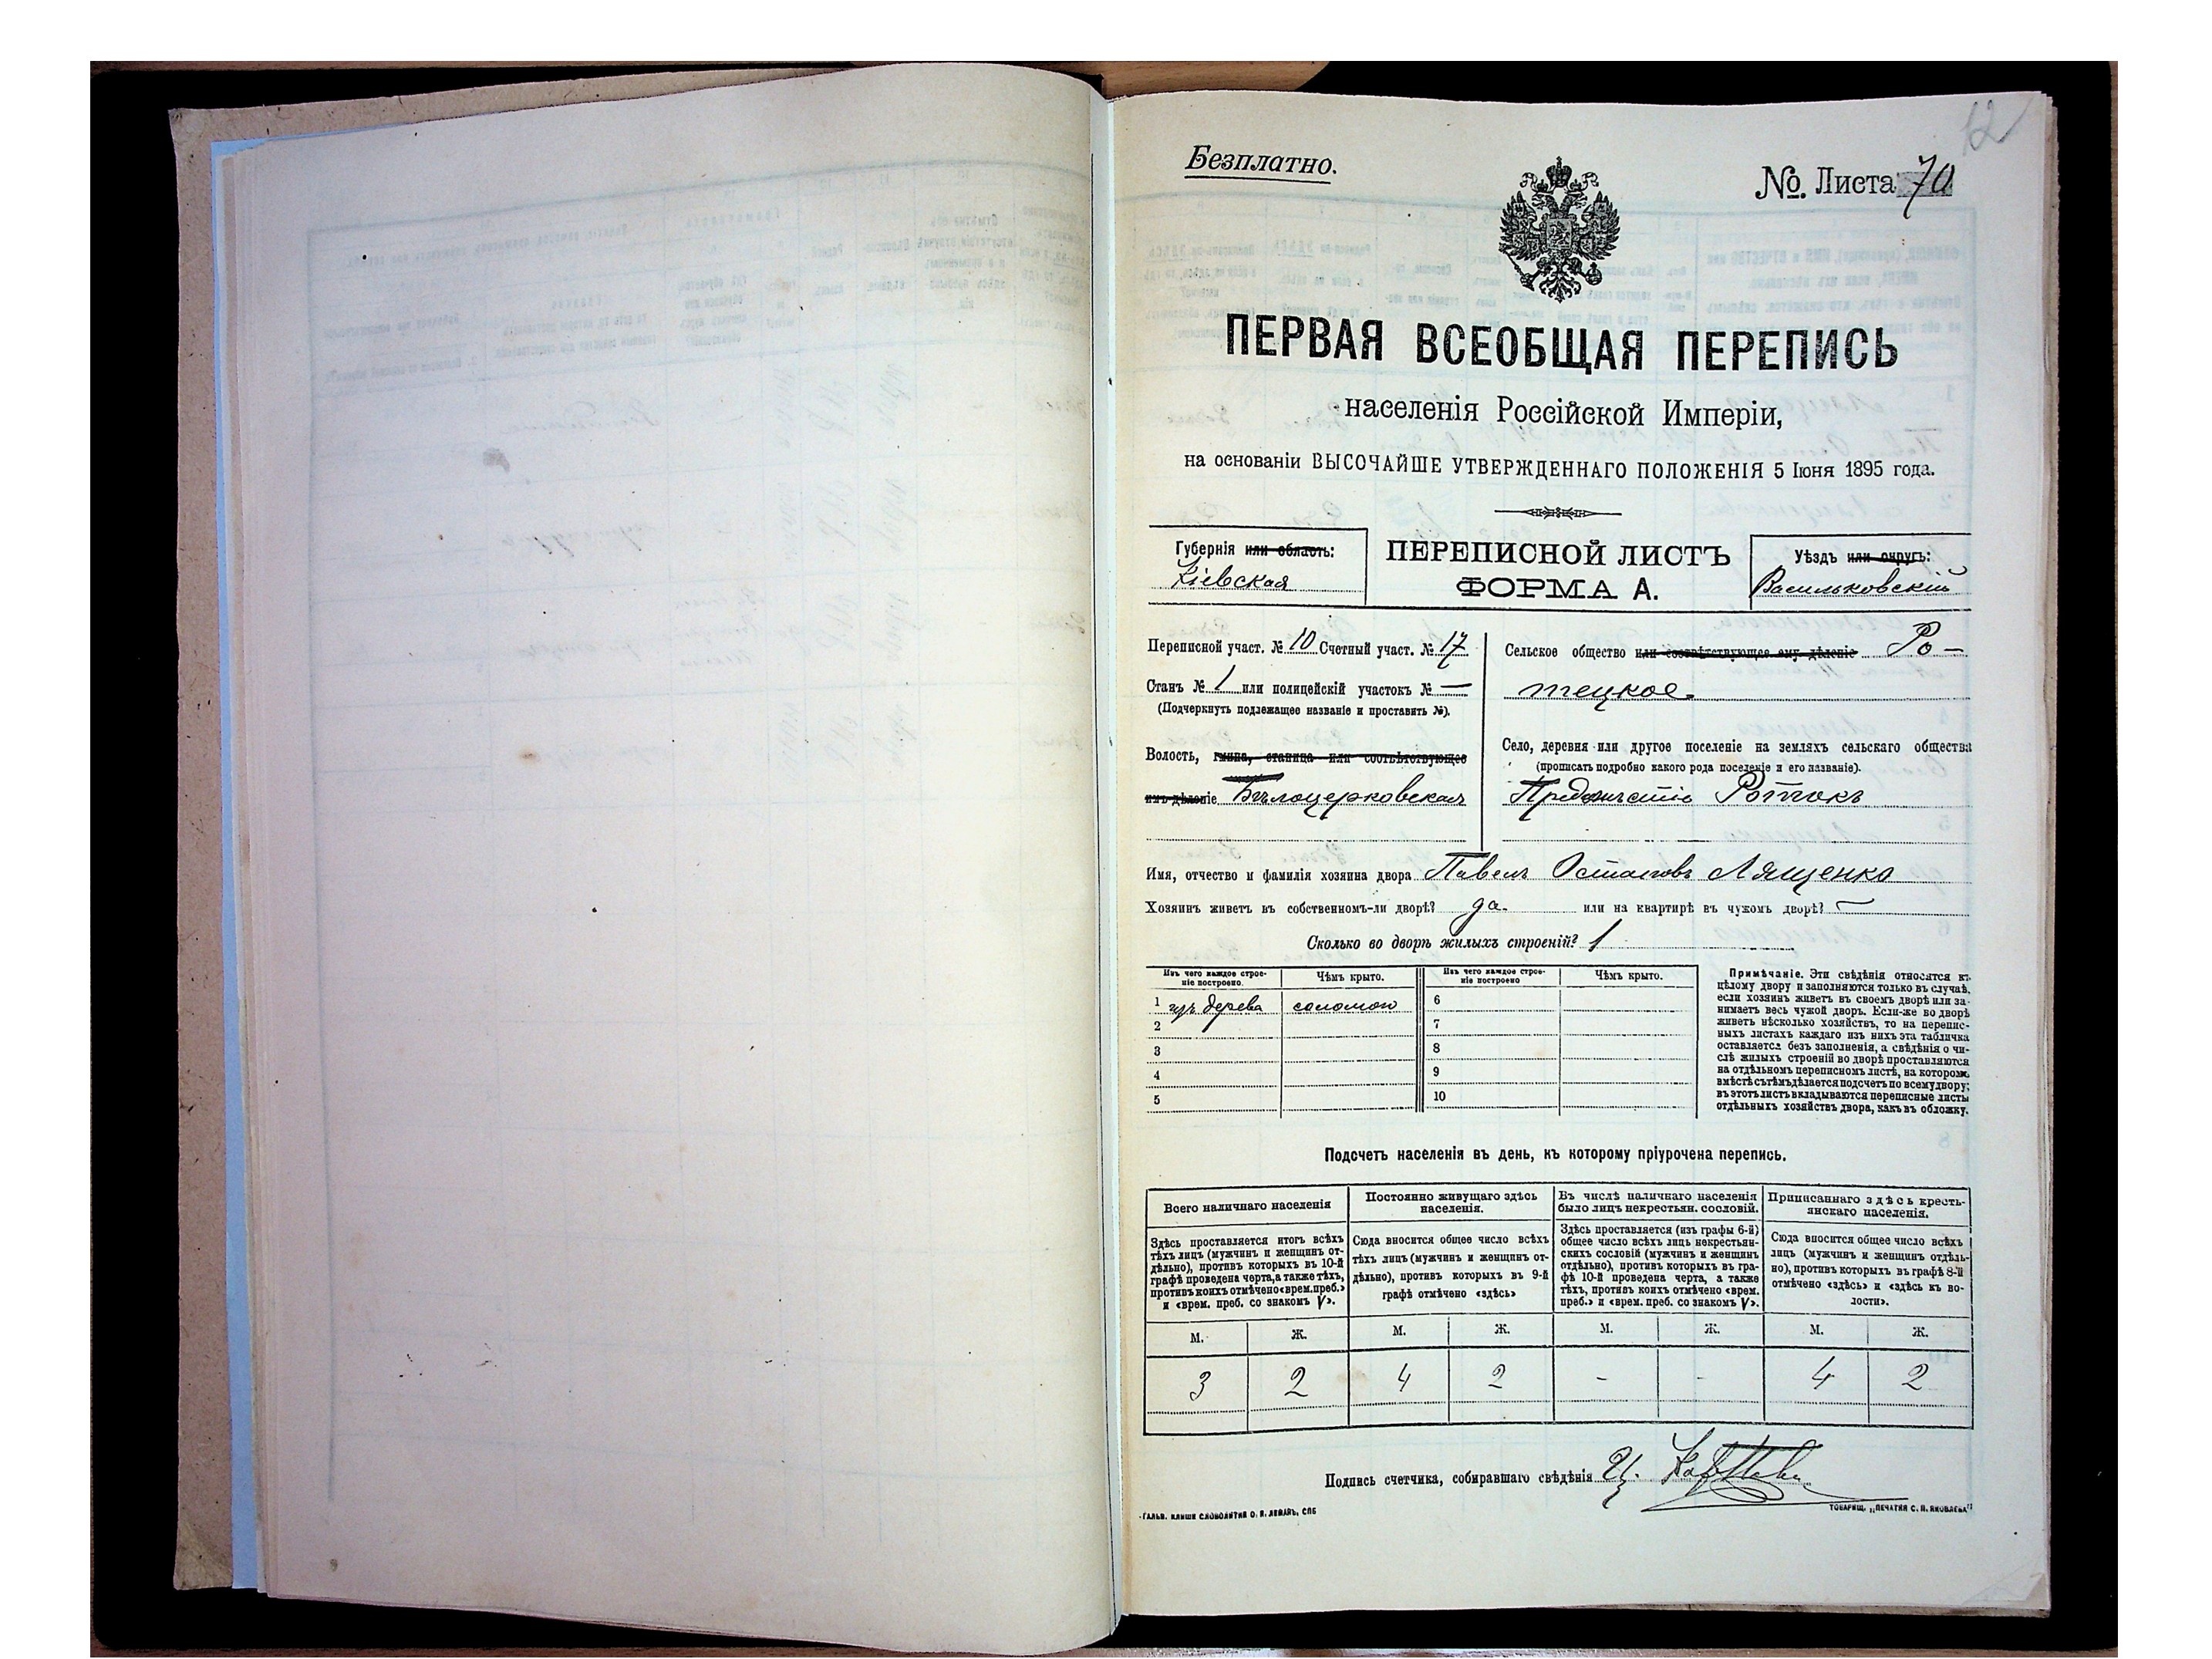 12
Безплатно.
№ Листа 70
ПЕРВАЯ ВСЕОБЩАЯ ПЕРЕПИСЬ
населенія Россійской Имперіи,
на основаніи ВЫСОЧАЙШЕ УТВЕРЖДЕННАГО ПОЛОЖЕНІЯ 5 Іюня 1895 года.
Губернія или область:
Кіевская
ПЕРЕПИСНОЙ ЛИСТЪ
ФОРМА А.
Уѣздъ или округъ:
Васильковскій
Переписной участ. № 10 Счетный участ. № 17
Станъ № 1 или полицейскій участокъ № —
(Подчеркнуть подлежащее названіе и проставить №).
Волость, гмина, станица или соотвѣтствующее
имъ дѣленіе Бѣлоцерковская
Сельское общество или соотвѣтствующее ему дѣленіе Ро-
тецкое.
Село, деревня или другое поселеніе на земляхъ сельскаго общества
(прописать подробно какого рода поселеніе и его названіе).
Предмѣстіе Ротокъ
Имя, отчество и фамилія хозяина двора Павелъ Остаповъ Лященко
Хозяинъ живетъ въ собственномъ-ли дворѣ? да. или на квартирѣ въ чужомъ дворѣ? —
Сколько во дворѣ жилыхъ строеній? 1
Изъ чего каждое строе-
ніе построено.
Чѣмъ крыто.
Изъ чего каждое строе-
ніе построено
Чѣмъ крыто.
1 изъ дерева соломою 6
2 7
3 8
4 9
5 10
Примѣчаніе. Эти свѣдѣнія относятся къ
цѣлому двору и заполняются только въ случаѣ,
если хозяинъ живетъ въ своемъ дворѣ или за-
нимаетъ весь чужой дворъ. Если-же во дворѣ
живетъ нѣсколько хозяйствъ, то на перепис-
ныхъ листахъ каждаго изъ нихъ эта табличка
оставляется безъ заполненія, а свѣдѣнія о чи-
слѣ жилыхъ строеній во дворѣ проставляются
на отдѣльномъ переписномъ листѣ, на которомъ
вмѣстѣ съ тѣмъ дѣлается подсчетъ по всему двору;
въ этотъ листъ вкладываются переписные листы
отдѣльныхъ хозяйствъ двора, какъ въ обложку.
Подсчетъ населенія въ день, къ которому пріурочена перепись.
Всего наличнаго населенія
Здѣсь проставляется итогъ всѣхъ
тѣхъ лицъ (мужчинъ и женщинъ от-
дѣльно), противъ которыхъ въ 10-й
графѣ проведена черта, а также тѣхъ,
противъ коихъ отмѣчено «врем. преб.»
и «врем. преб. со знакомъ V».
Постоянно живущаго здѣсь
населенія.
Сюда вносится общее число всѣхъ
тѣхъ лицъ (мужчинъ и женщинъ от-
дѣльно), противъ которыхъ въ 9-й
графѣ отмѣчено «здѣсь»
Въ числѣ наличнаго населенія
было лицъ некрестьян. сословій.
Здѣсь проставляется (изъ графы 6-й)
общее число всѣхъ лицъ некрестьян-
скихъ сословій (мужчинъ и женщинъ
отдѣльно), противъ которыхъ въ гра-
фѣ 10-й проведена черта, а также
тѣхъ, противъ коихъ отмѣчено «врем.
преб.» и «врем. преб. со знакомъ V».
Приписаннаго здѣсь кресть-
янскаго населенія.
Сюда вносится общее число всѣхъ
лицъ (мужчинъ и женщинъ отдѣль-
но), противъ которыхъ въ графѣ 8-й
отмѣчено «здѣсь» и «здѣсь къ во-
лости».
М. Ж. М. Ж. М. Ж. М. Ж.
3 2 4 2 - - 4 2
Подпись счетчика, собиравшаго свѣдѣнія
ГАЛЬВ. КЛИШЕ СЛОВОЛИТНИ О. И. ЛЕМАНЪ, СПБ
ТОВАРИЩ. „ПЕЧАТНЯ С. П. ЯКОВЛЕВА"